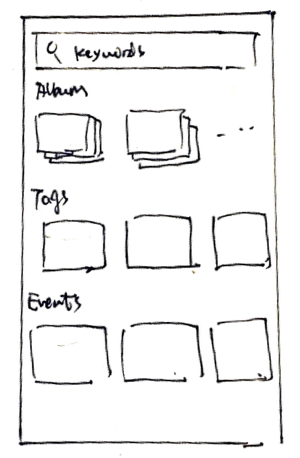 keywords
Album
...
Tags
Events